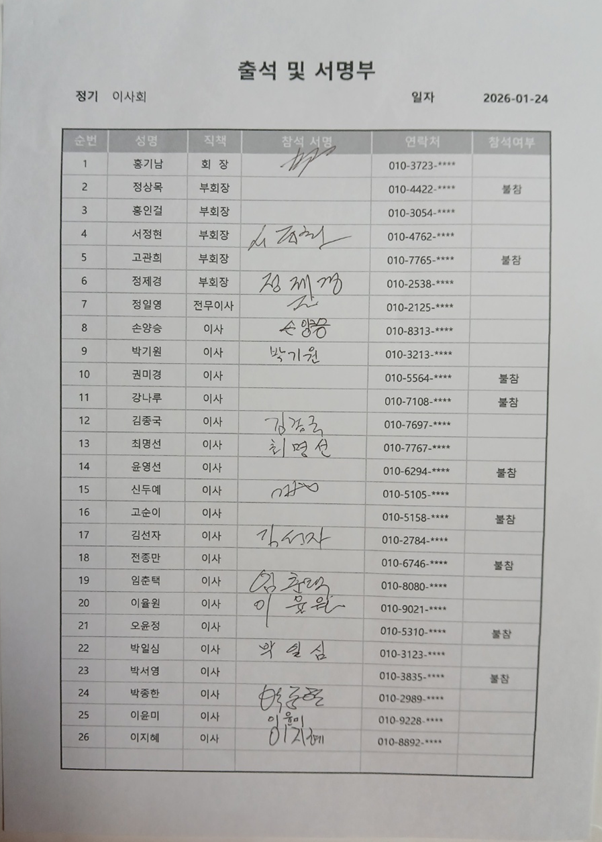 출석 및 서명부
정기 이사회 일자 2026-01-24
순번 성명 직책 참석 서명 연락처 참석여부
1 홍기남 회 장 010-3723-****
2 정상목 부회장 010-4422-**** 불참
3 홍인걸 부회장 010-3054-****
4 서정현 부회장 서정현 010-4762-****
5 고관희 부회장 010-7765-**** 불참
6 정제경 부회장 정제경 010-2538-****
7 정일영 전무이사 010-2125-****
8 손양승 이사 손양승 010-8313-****
9 박기원 이사 박기원 010-3213-****
10 권미경 이사 010-5564-**** 불참
11 강나루 이사 010-7108-**** 불참
12 김종국 이사 김종국 010-7697-****
13 최명선 이사 최명선 010-7767-****
14 윤영선 이사 010-6294-**** 불참
15 신두예 이사 010-5105-****
16 고순이 이사 010-5158-**** 불참
17 김선자 이사 김선자 010-2784-****
18 전종만 이사 010-6746-**** 불참
19 임춘택 이사 임춘택 010-8080-****
20 이율원 이사 이율원 010-9021-****
21 오윤정 이사 010-5310-**** 불참
22 박일심 이사 박일심 010-3123-****
23 박서영 이사 010-3835-**** 불참
24 박종한 이사 010-2989-****
25 이윤미 이사 이윤미 010-9228-****
26 이지혜 이사 이지혜 010-8892-****